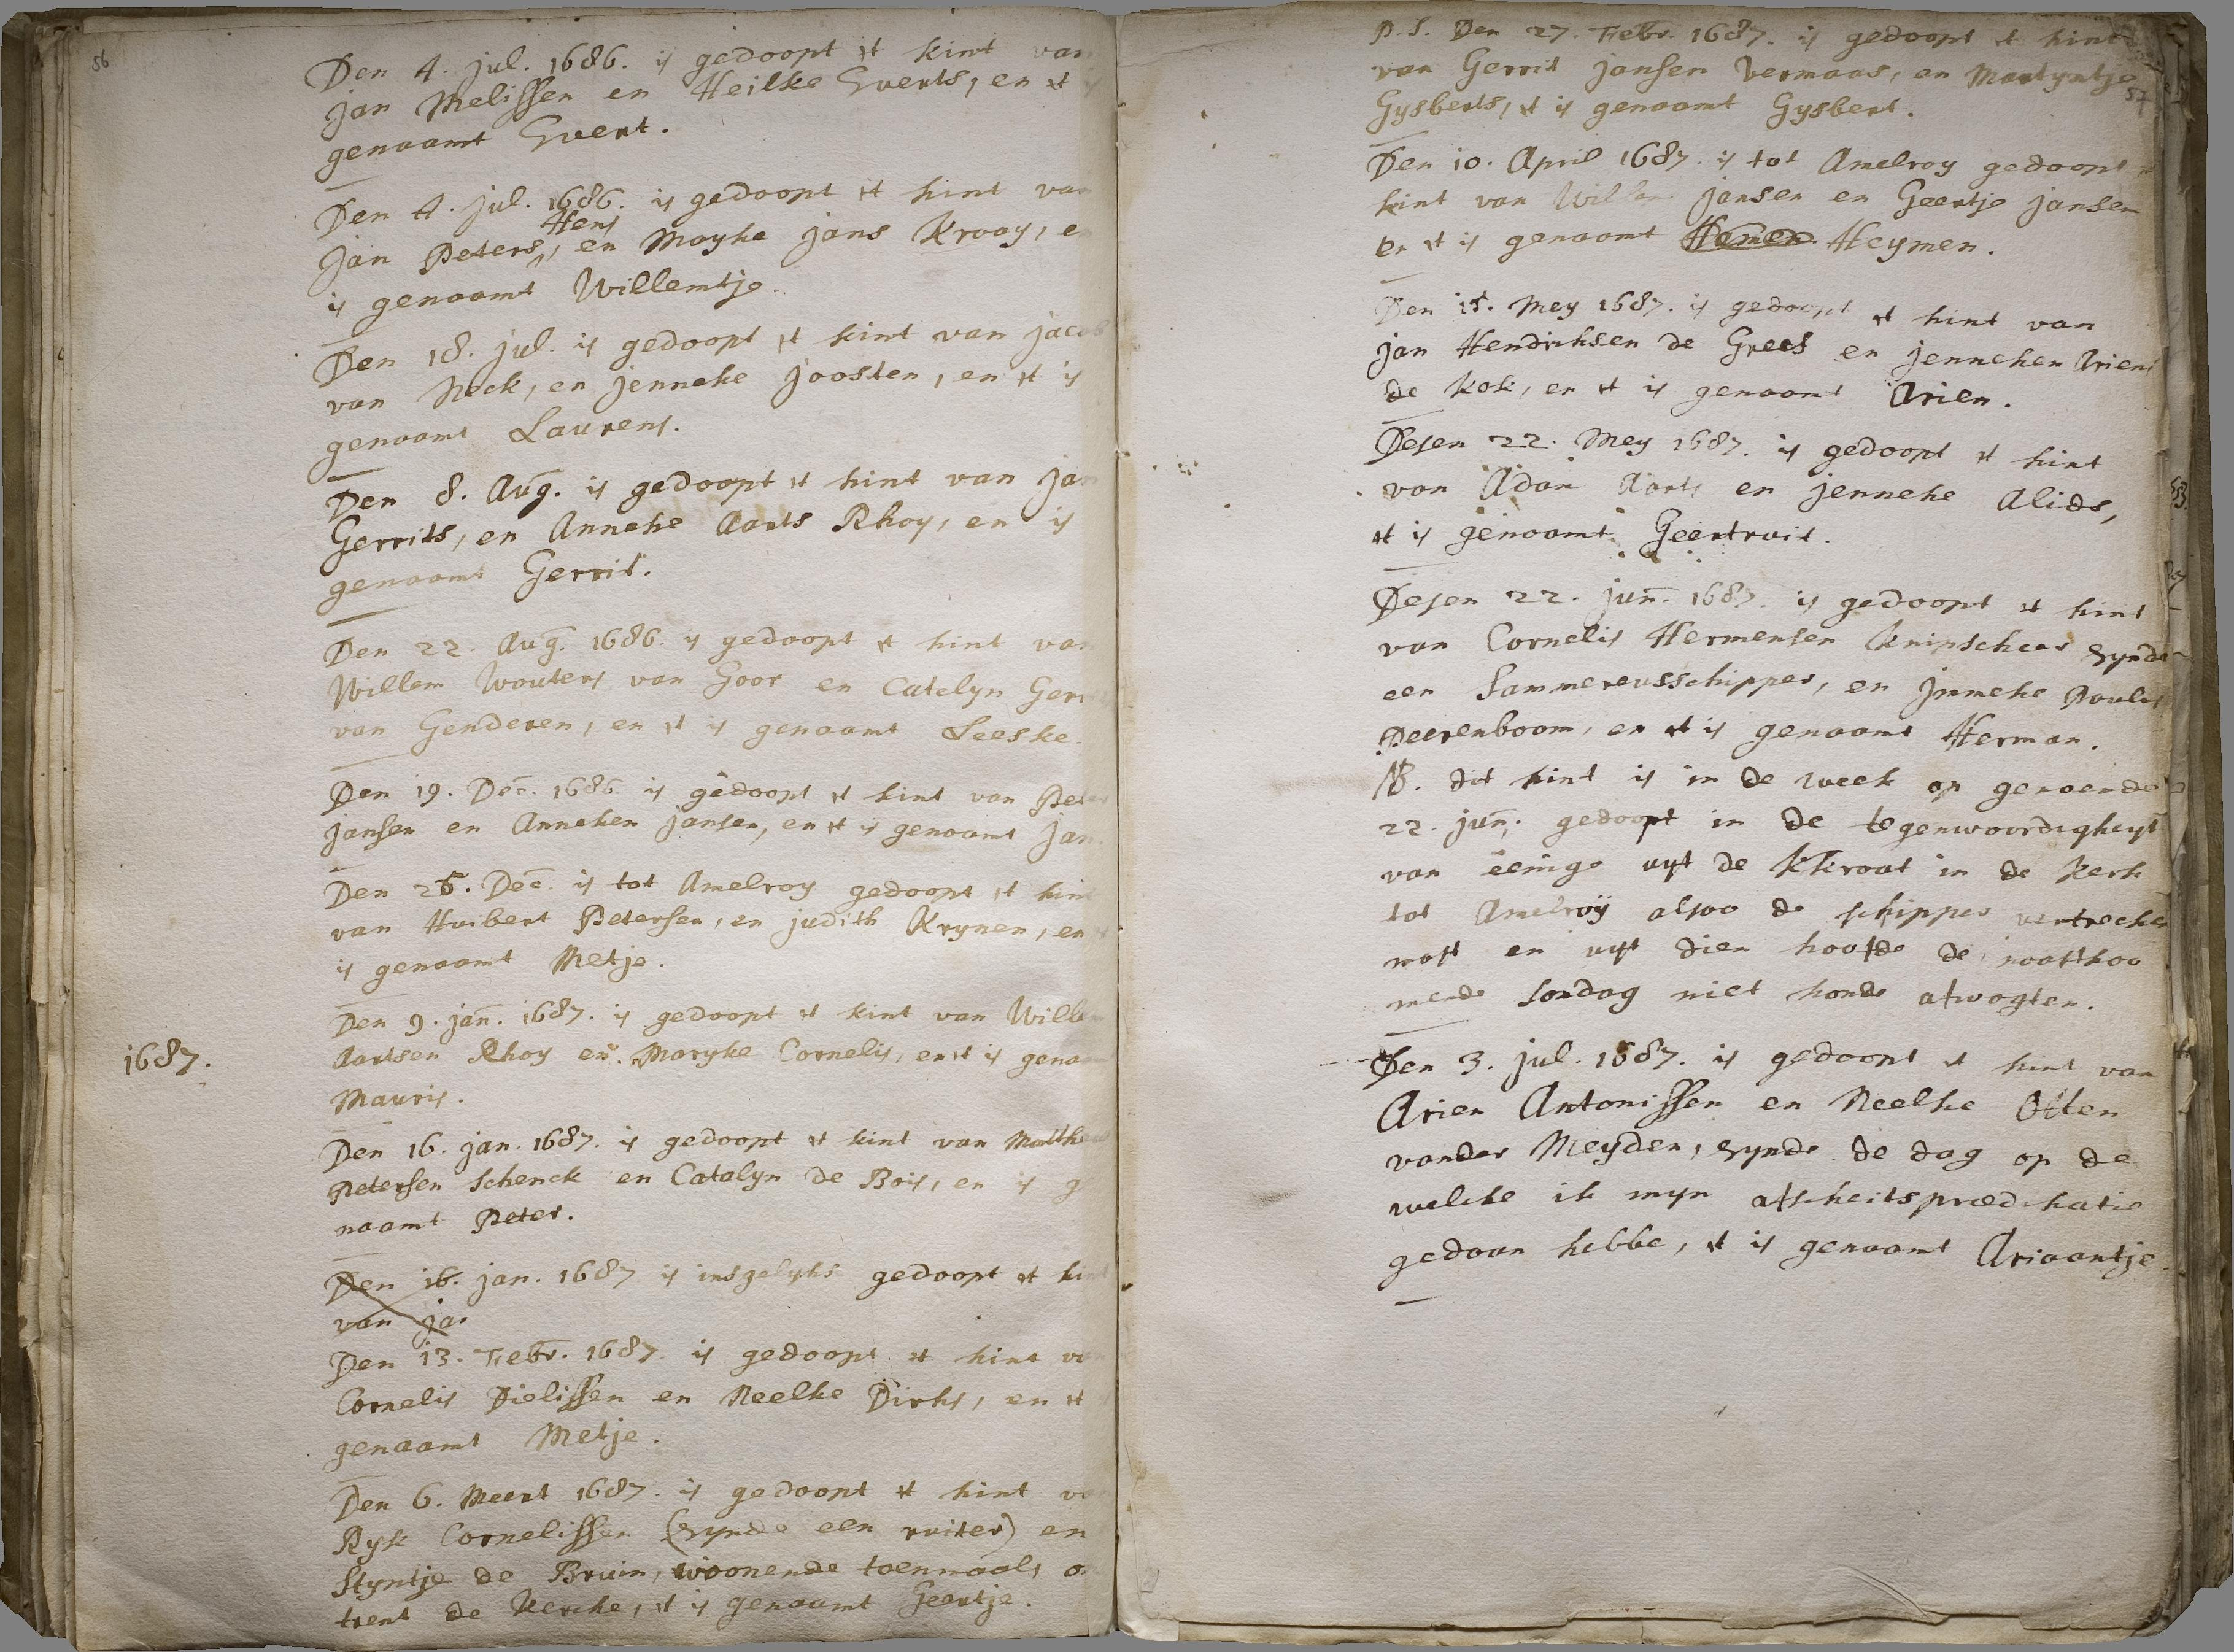 56
Den 4. jul. 1686. is gedoopt 't kint van
jan Melissen en Heilke Everts, en 't is
genaamt Evert.
Den 4. jul. 1686. is gedoopt 't kint van
Hens
Jan Peters, en Mayke jans Kraay, en
is genaamt Willemtje.
Den 18. jul. is gedoopt 't kint van jacob
van Neck, en jenneke joosten, en 't is
genaamt Laurens.
Den 8. Aug. is gedoopt 't kint van jan
Gerrits, en Anneke Aarts Rhoy, en is
genaamt Gerrit.
Den 22. Aug. 1686. is gedoopt 't kint van
Willem Wouters van Goor en Catelyn
van Genderen, en 't is genaamt Leeske.
Den 19. Dec. 1686. is gedoopt 't kint van Peter
jansen en Anneken jansen, en 't is genaamt jan.
Den 26. Dec. is tot Amelroy gedoopt 't kint
van Huibert Petersen, en judith Krynen, en
is genaamt Metje.
1687.
Den 9. jan. 1687. is gedoopt 't kint van Willem
Aartsen Rhoy en Maryke Cornelis, en 't is genaamt
Mauris.
Den 16. jan. 1687. is gedoopt 't kint van Mattheus
Petersen Schenck en Catalyn de Bois, en is ge
naamt Peter.
Den 16. jan. 1687 is insgelyks gedoopt 't kint
van ja
Den 13. Febr. 1687. is gedoopt 't kint van
Cornelis Dielissen en Neelke Dirks, en 't
genaamt Metje.
Den 6. Meert 1687. is gedoopt 't kint van
Ryk Cornelissen (synde een ruiter) en
Styntje de Bruin, woonende toenmaals on
trent de Kercke, 't is genaamt Geertje.
P.S. Den 27. Febr. 1687. is gedoopt 't kint
van Gerrit jansen Vermaas, en Martyntje
57
Gysberts, 't is genaamt Gysbert.
Den 10. April 1687. is tot Amelroy gedoopt 't
kint van Willem jansen en Geertje jansen
en 't is genaamt Hemen. Heymen.
Den 15. Mey 1687. is gedoopt 't kint van
jan Hendriksen de Grees en jenneken Ariens
de Kok, en 't is genaamt Arien.
Desen 22. Mey 1687. is gedoopt 't kint
van Adan Aarts en jenneke Alids,
't is genaamt Geertruit.
Desen 22. jun. 1687. is gedoopt 't kint
van Cornelis Hermensen Knipscheer synde
een Sammereusschipper, en jnneke Poulus
Peerenboom, en 't is genaamt Herman.
NB. dit kint is in de week op genoemde
22. jun. gedoopt in de tegenwoordigheyt
van eenige uyt de Kkraat in de Kerk
tot Amelroij alsoo de schipper vertrecken
most en uyt dien hoofde de naastkoo
mende sondag niet konde afwagten.
Den 3. jul. 1687. is gedoopt 't kint van
Arien Antonissen en Neelke Otten
vander Meyden, synde de dag op de
welcke ik myn afscheitspraedikatie
gedaan hebbe, 't is genaamt Ariaantje.